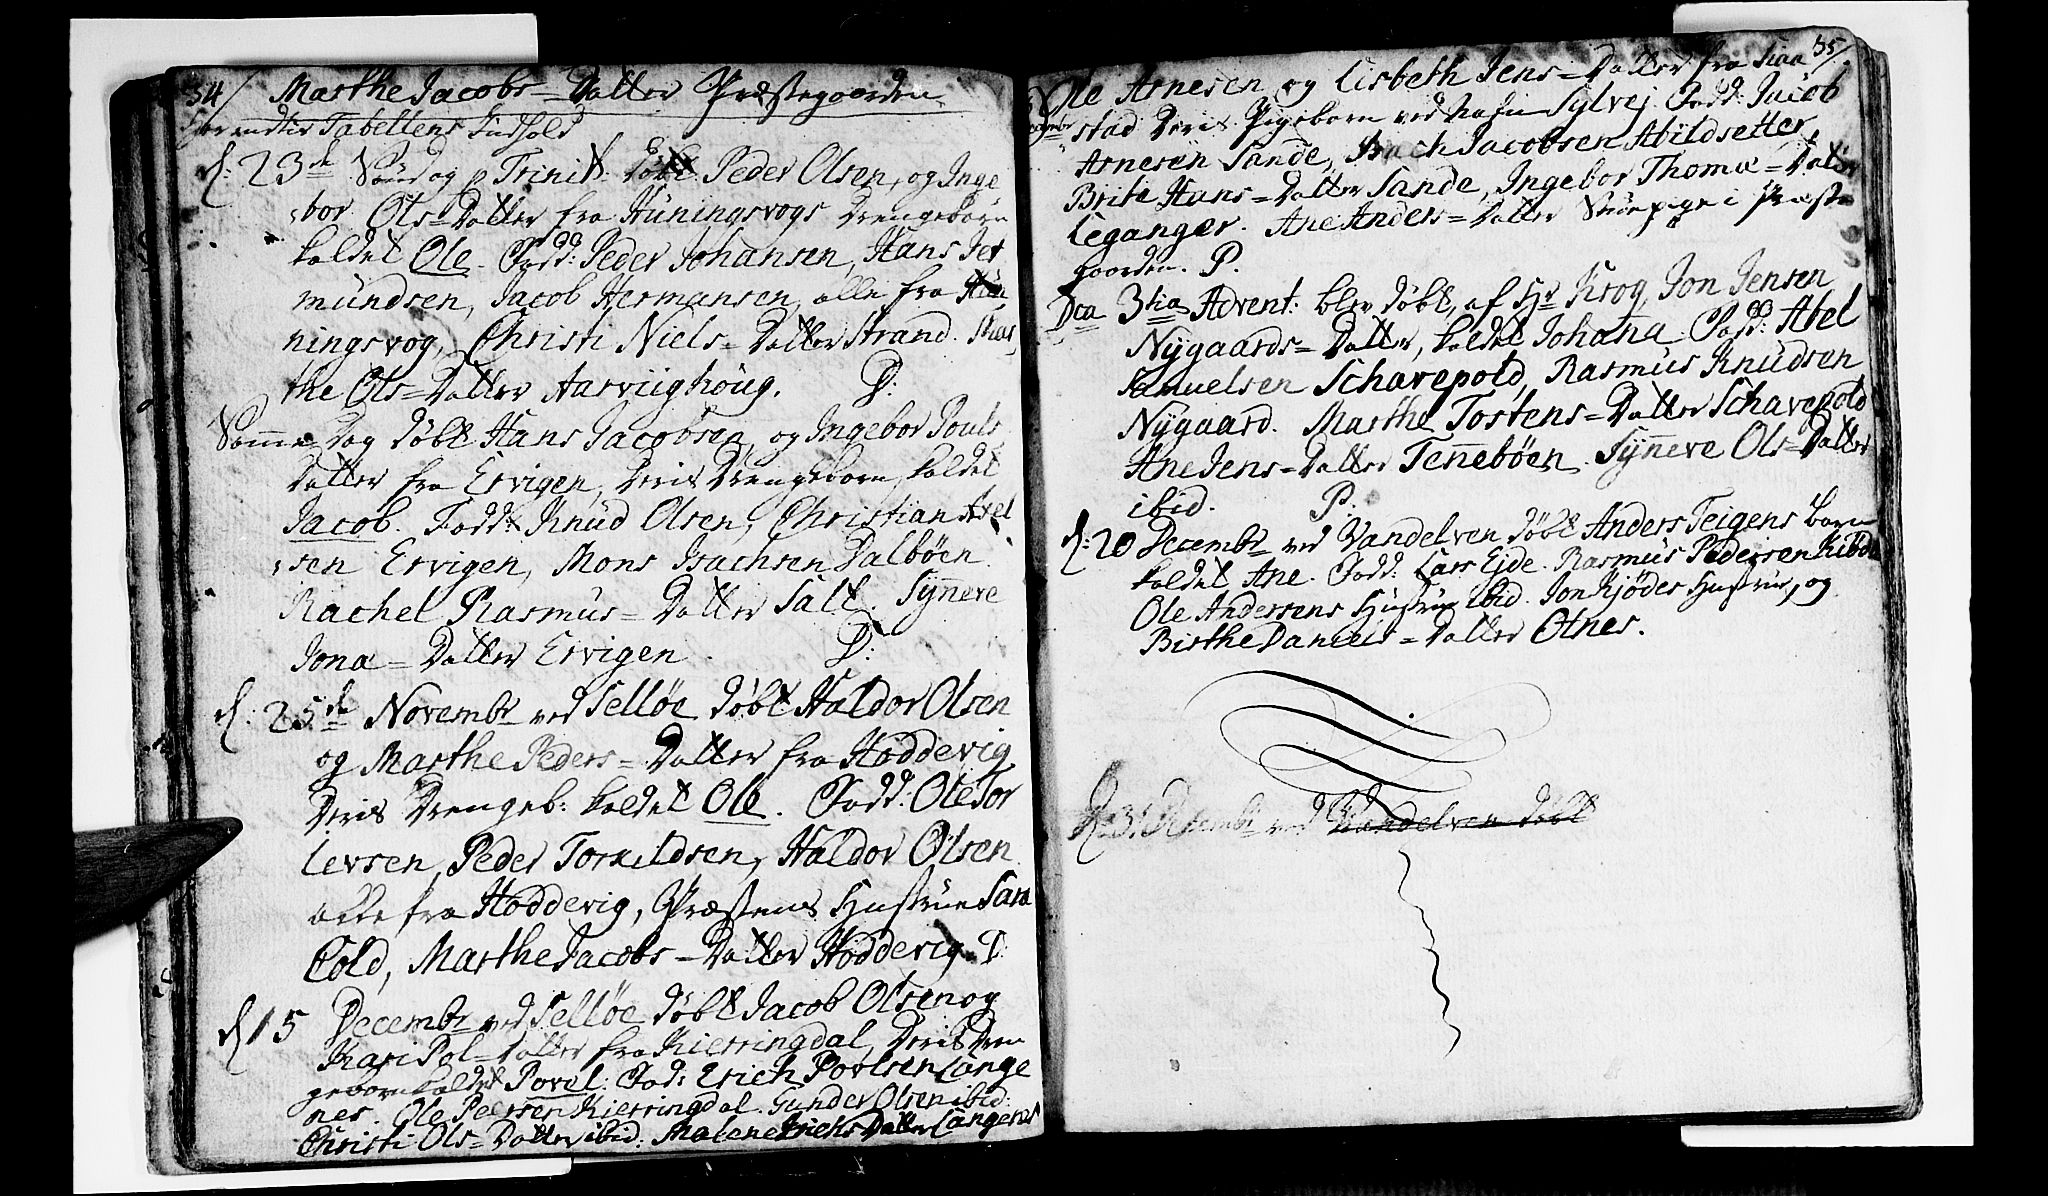 34/ Marthe Jacobs-Datter Præstegaarden
Tabellens Indhold
d: 23de Søndag p Trinit: døbt Peder Olsen, og Inge
bor Ols-Datter fra Huningsvogs Drengebarn
kaldet Ole. Fadd: Peder Johansen, Hans Jet
mundsen, Jacob Hermansen, alle fra Hu
ningsvog, Christi Niels-Datter Strand. Mar
the Ols-Datter Aarviighoug. D:
Samme Dag døbt Hans Jacobsen, og Ingebor Pouls
Datter fra Ervigen, deris Drengebarn, kaldet
Jacob. Fadd: Knud Olsen, Christian Axel
sen Ervigen, Mons Isachsen Dalbøen.
Rachel Rasmus-Datter Salt. Sÿnneve
Jonæ-Datter Ervigen. D:
d: 25de Novembr ved Selløe døbt Haldor Olsen
og Marthe Peders-Datter fra Hoddevig
Deris Drengeb: kaldet Ole. Fadd: Ole Tor
levsen, Peder Torkildsen, Haldor Olsen
alle fra Hoddevig, Præstens Hustrue Sara
Cold, Marthe Jacobs-Datter Hoddevig. D
d 15 Decembr ved Selløe døbt Jacob Olsen og
Kari Pol-Datter fra Kierringdal, Deris Dren
gebarn kaldet Povel. Fad: Erich Povlsen Lange
nes. Ole Peersen Kierringdal. Gunder Olsen ibid:
Christi Ols-Datter ibid: Malene Erichs Datter Langenes
35/.
Ole Arnesen og Lisbeth Jens-Datter fra Siaa
stad Deris Pigebarn ved Nafn Sylvej. Fadd: Jacob
Arnesen Sande, Isach Jacobsen Abildsetter,
Brite Hans-Datter Sande, Ingebor Thomæ-Datter
Leganger. Ane Anders-Datter pige i Præste
gaarden. P.
Dca 3tia Advent: blev døbt, af Hr Krog, Jon Jensen
Nÿgaards-Datter, kaldet Johana. Fadd: Abel
Samuelsen Schavepold, Rasmus Knudsen
Nÿgaard. Marthe Tostens-Datter Schavepold
Ane Jens-Datter Tennebøen. Sÿnneve Ols-Datter
ibid. P.
d: 20 Decembr ved Vandelven døbt Anders Teigens barn
kaldet Ane. Fadd: Lars Ejde. Rasmus Pedersen
Ole Andersens Hustrue ibid. Jon Kjødes Hustrue, og
Birthe Daniels-Datter Otnes.
31 Decembr ved Vandelven døbt